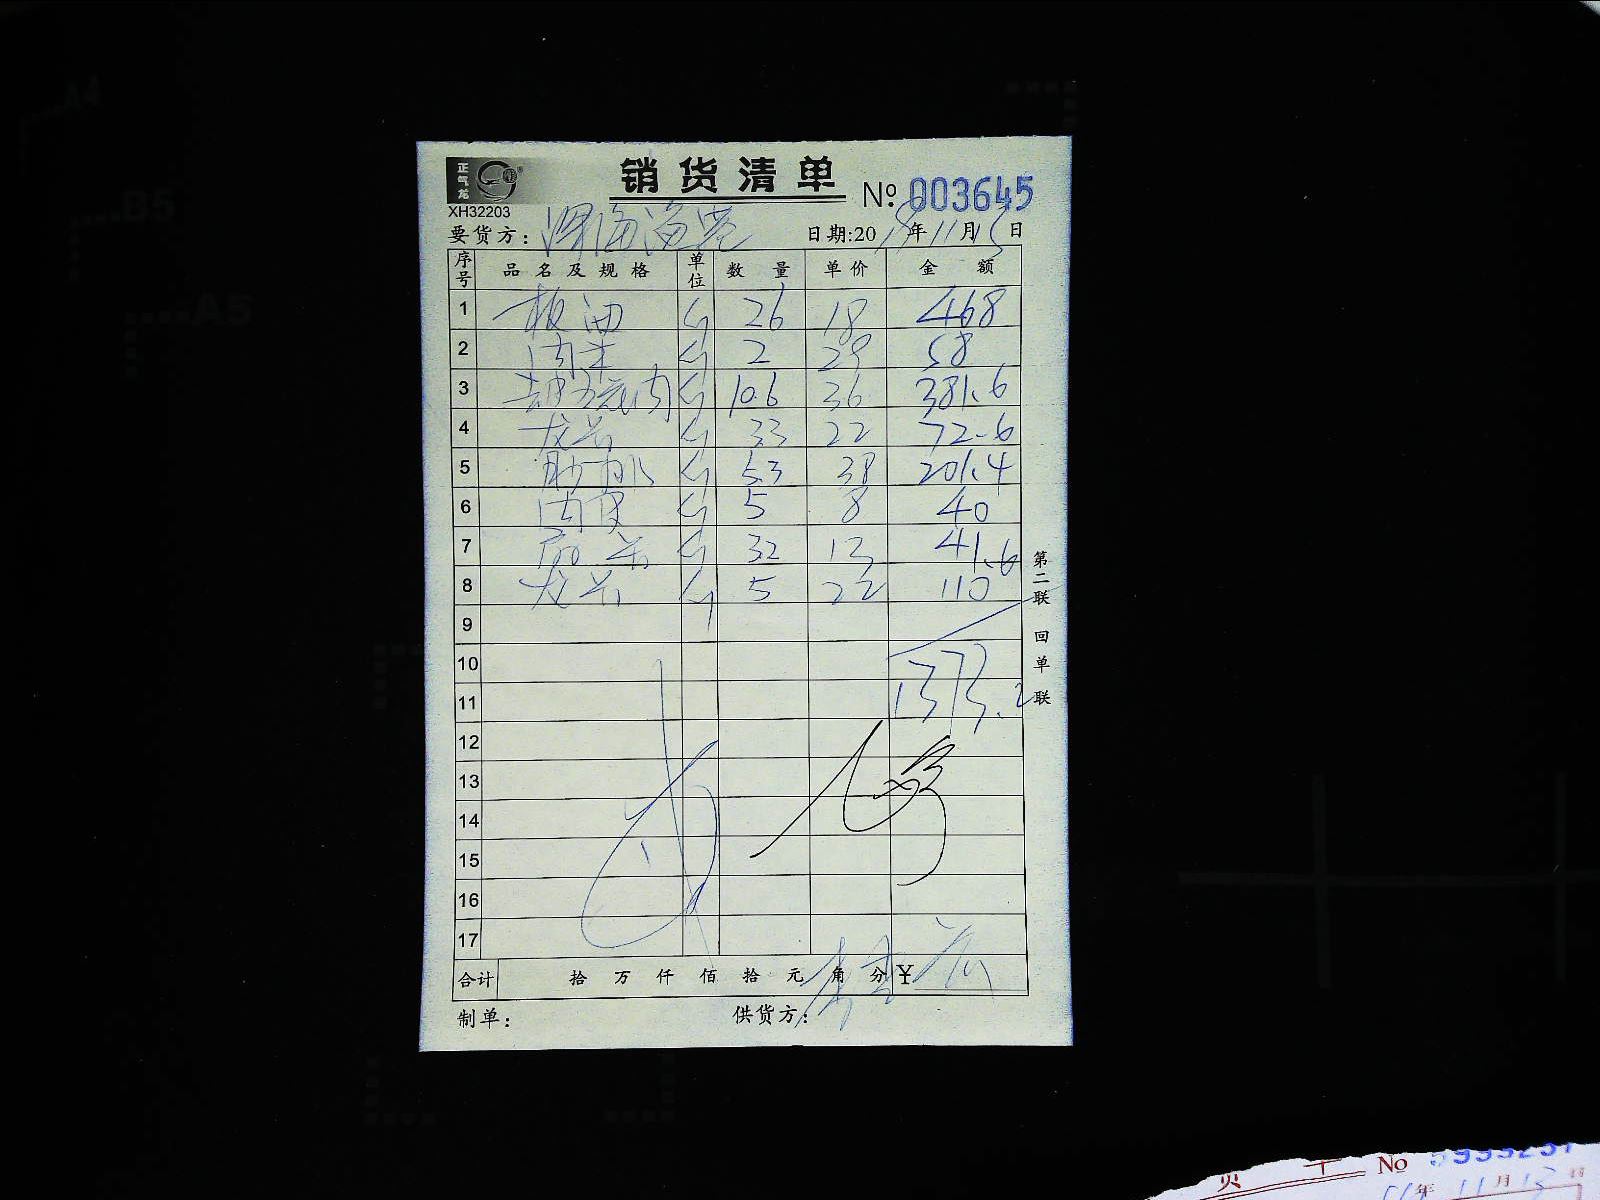 正气龙
销货清单
№ 003645
XH32203
要货方: 日期:20 年11月13日
序号 品名及规格 单位 数量 单价 金额
1 板油 斤 26 18 468
2 肉末 斤 2 29 58
3 去皮五花肉 斤 10.6 36 381.6
4 龙骨 斤 33 22 72.6
5 肋排 斤 5.3 38 201.4
6 肉皮 斤 5 8 40
7 扇骨 斤 32 13 41.6
8 龙骨 斤 5 22 110
9
10
11 1373.2
12
13
14
15
16
17
合计 拾 万 仟 佰 拾 元 角 分 ¥
制单: 供货方:
第二联 回单联
A4
B5
A5
No
年 11月13日